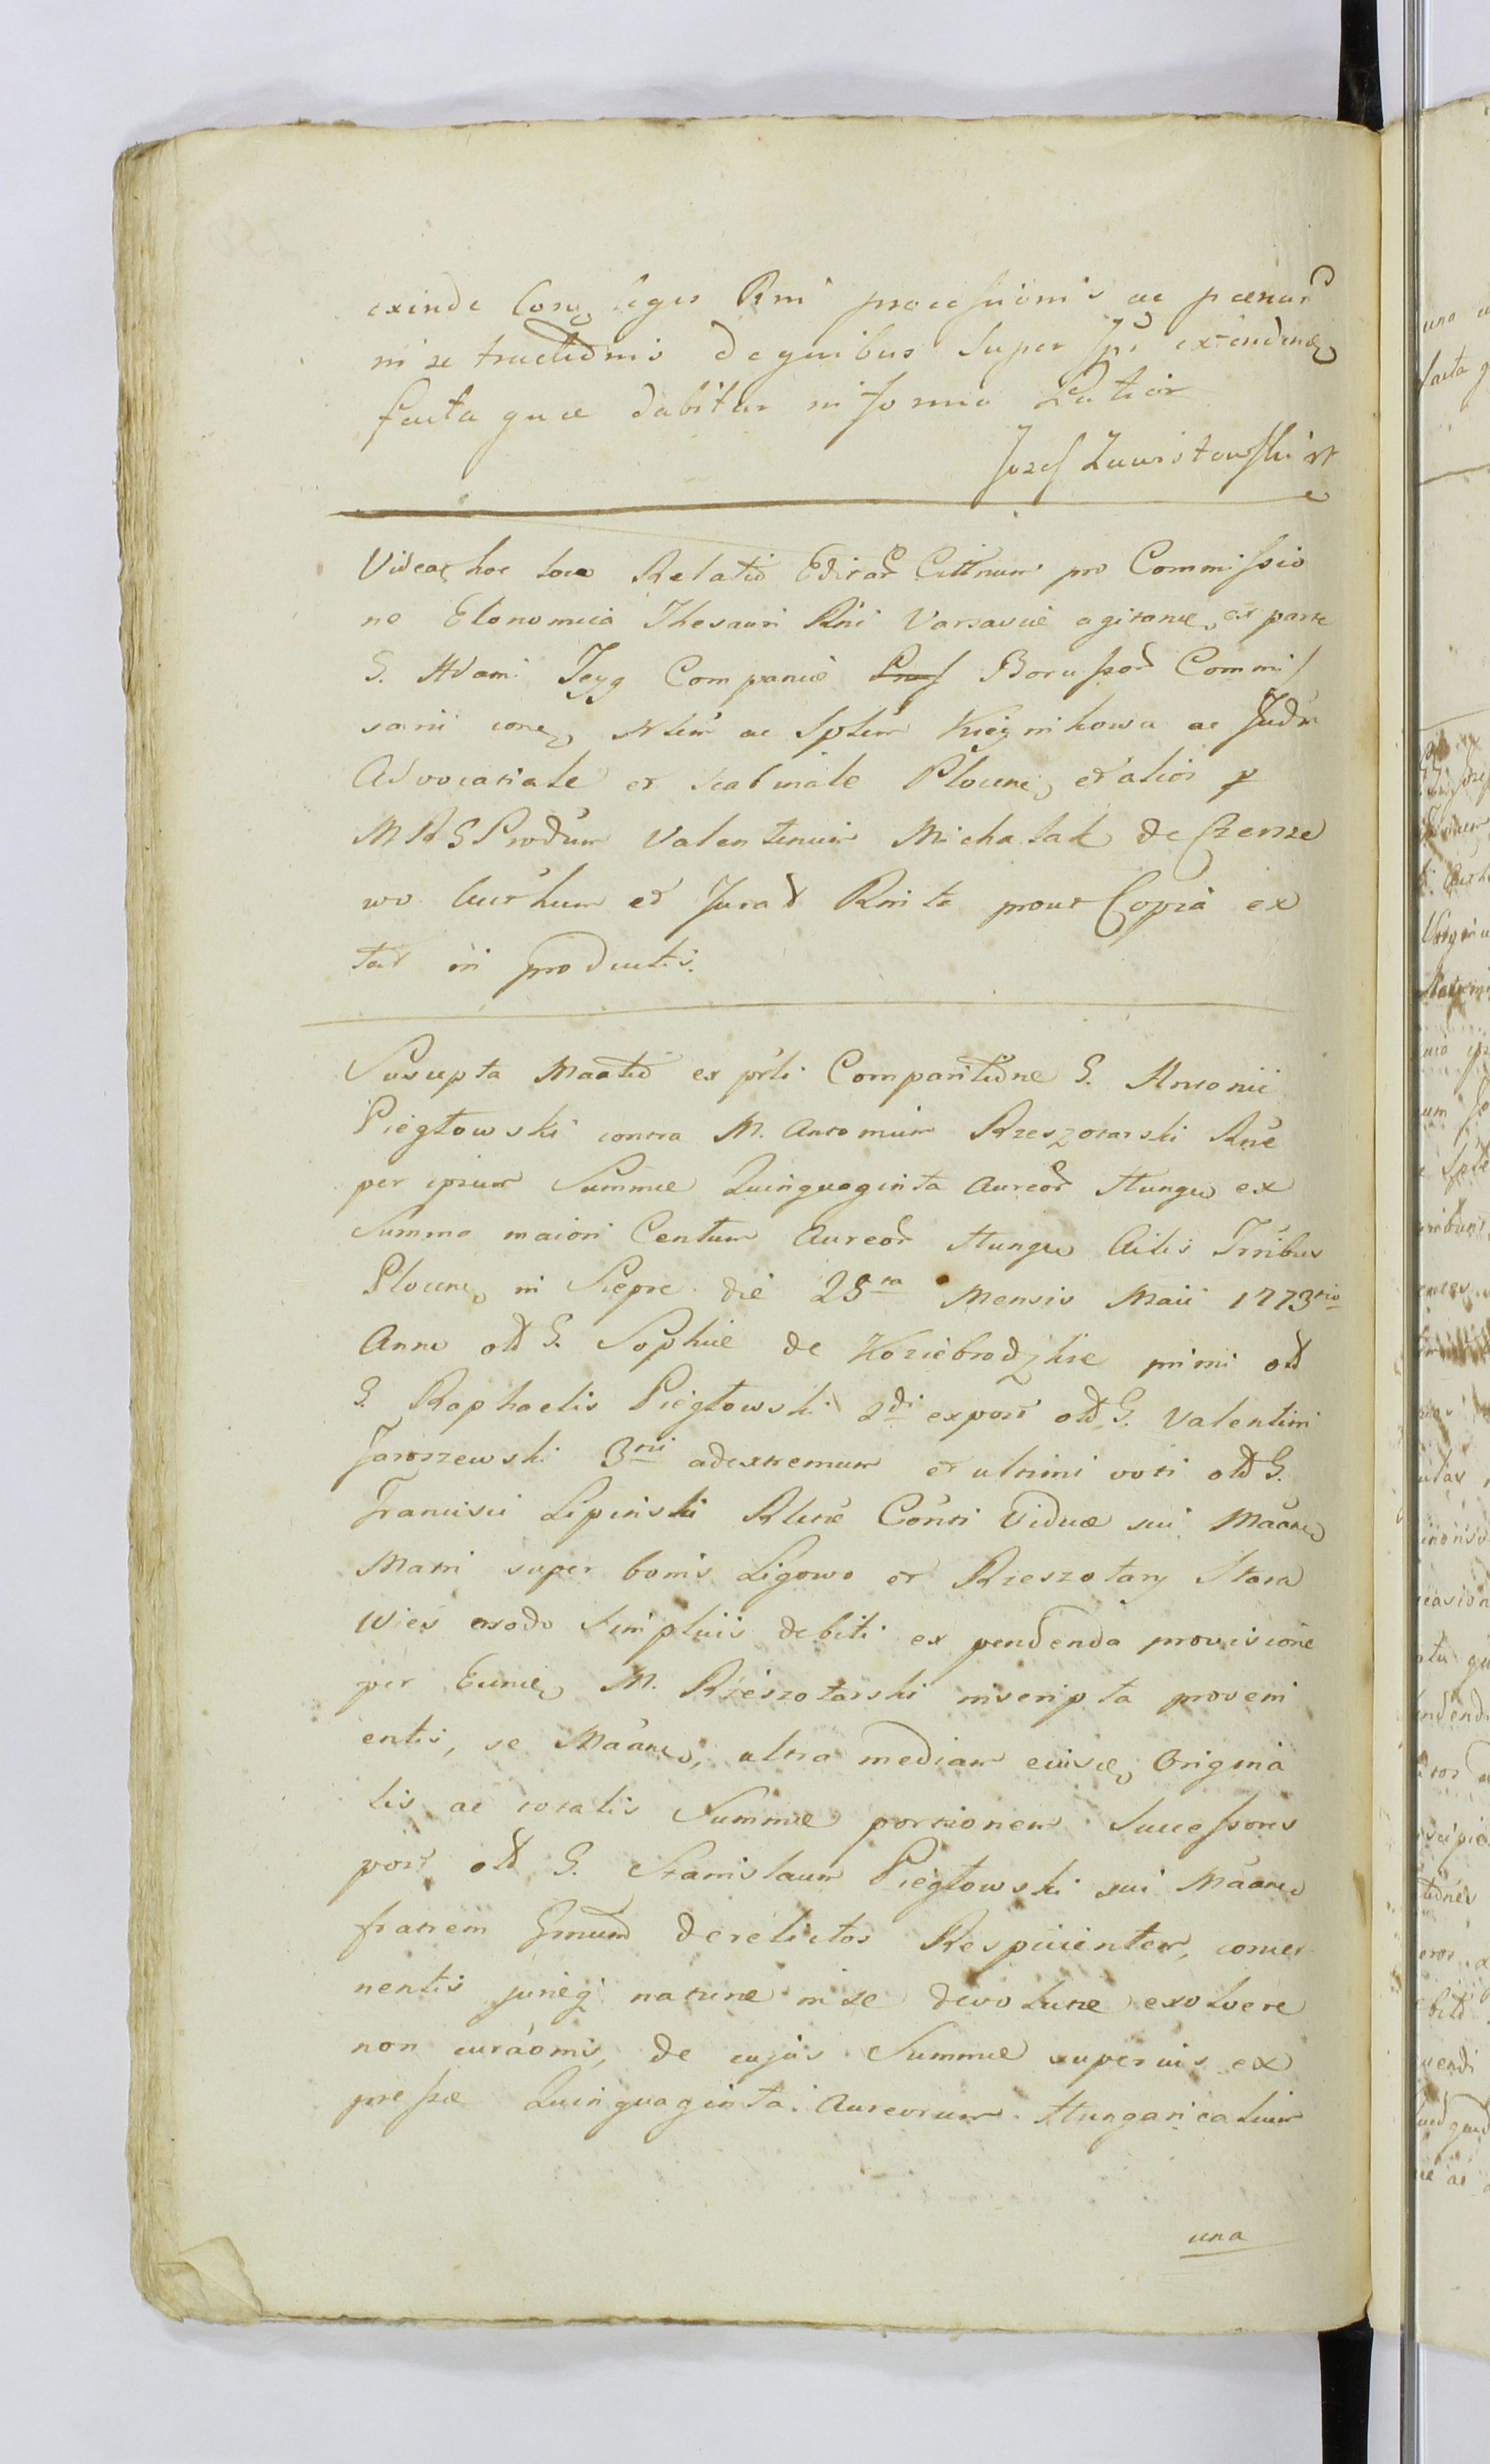 exinde leges Rni processionis ac
in se de quibus super
facta quae dabitur in forma Latior
Jozef Zawistowski
Videat hoc loco Relatio pro Commissio
ne Ekonomica Thesauri Rni Varsavie agitan ex parte
G. Adami Jeyg Companie Borussor Commis
sarii ac ac Judm
Advocatiale et Scabinale Plocen et alios p
MRSProdum Valentinum Michalak de Czerze
wo et Jurat Rnita prout Copia ex
tat in productis.
Suscepta ex Comparitione G. Antonii
Piegłowski contra M. Antonium Rzeszotarski Rne
per ipsum Summe Quinquaginta Aureor Hungar ex
Summa maiori Centum Aureor Hungar Trribus
Plocen in Sierpc die 28va Mensis Maii 1773tio
Anno olt G. Sophie de Koziebrodzkie primi olt
G. Raphaelis Piegłowski 2di expost olt G. Valentini
Jaroszewski 3tii adextremum et ultimi voti olt G.
Francisci Lipinski Viduae sui
Matri super bonis Ligowo et Rzeszotary Stara
Wies modo simplicis debiti ex pendenda provisione
per M. Rzeszotarski inscripta proveni
entis, se ultra mediam eiusd Origina
lis ac totalis Summe portionem Successores
post olt G. Stanislaum Piegłowski sui
fratrem Gmum derelictos Respicientem, concer
nentis jureq nature in se devolute exolvere
non de cujus Summe superius ex
pressae Quinquaginta Aureorum Hungaricalium
una